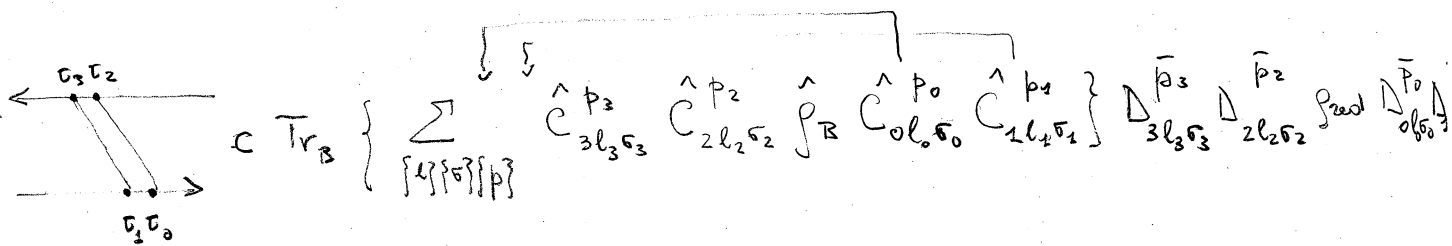 τ₃ τ₂
c Tr_B { Σ_{{l}{σ}{p}} Ĉ^{p₃}_{3l₃σ₃} Ĉ^{p₂}_{2l₂σ₂} ρ̂_B Ĉ^{p₀}_{0l₀σ₀} Ĉ^{p₁}_{1l₁σ₁} } D^{p̄₃}_{3l₃σ₃} D^{p̄₂}_{2l₂σ₂} ρ_red D^{p̄₀}_{0l₀σ₀} D
τ₁ τ₀